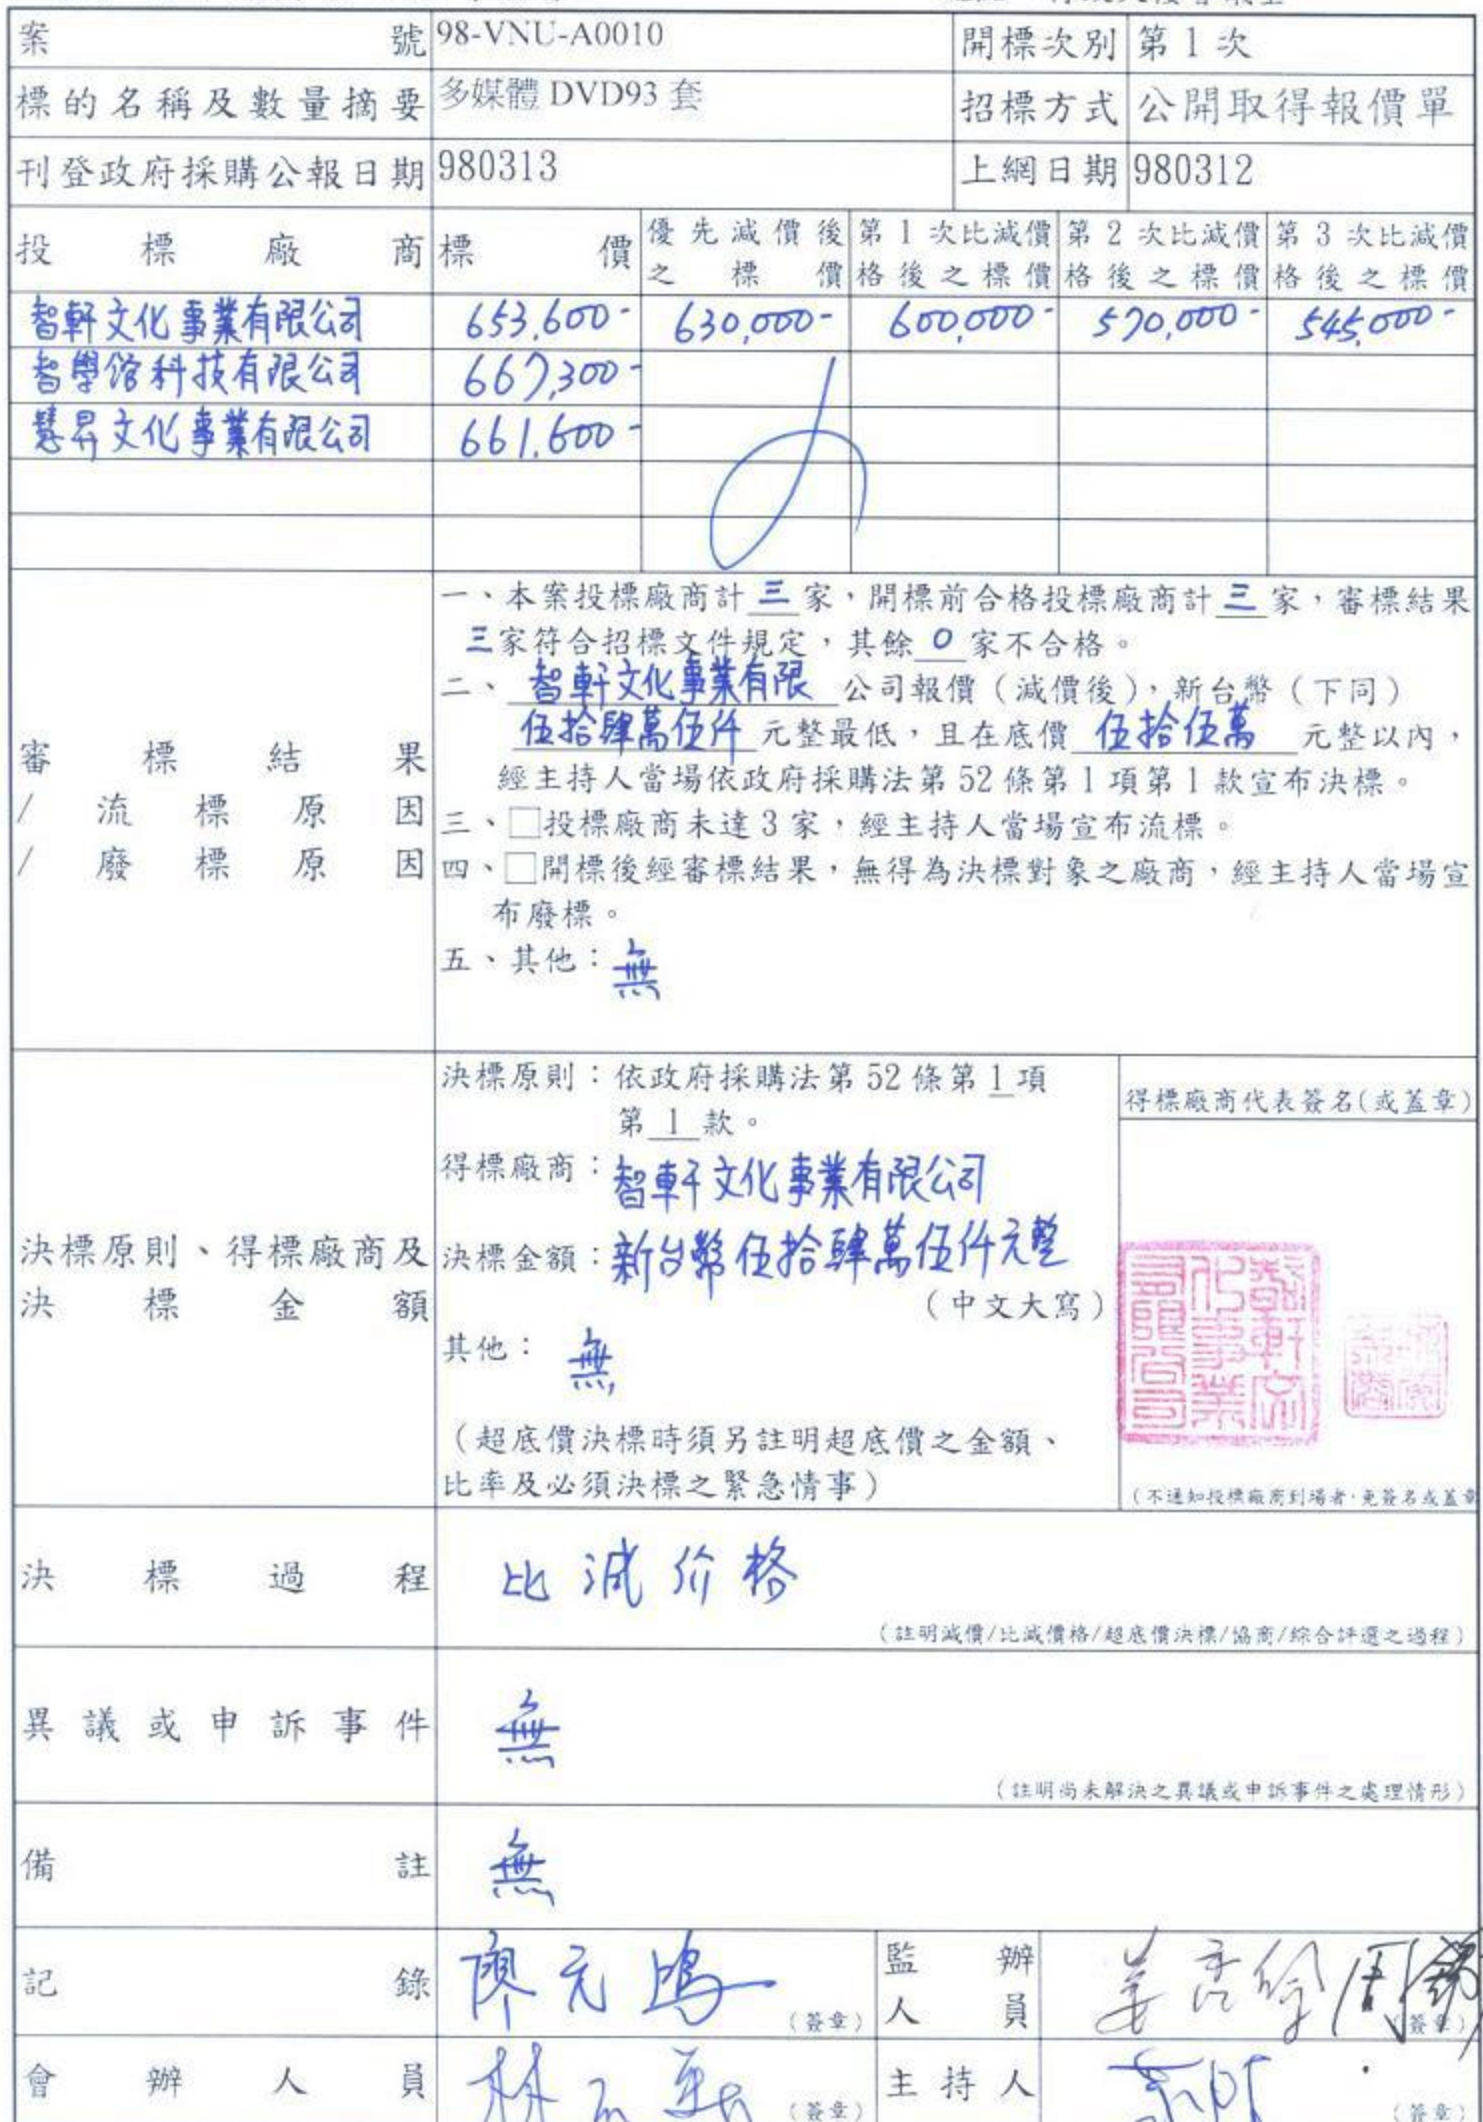 案號 98-VNU-A0010 開標次別 第1次
標的名稱及數量摘要 多媒體DVD93套 招標方式 公開取得報價單
刊登政府採購公報日期 980313 上網日期 980312
投標廠商 標價 優先減價後之標價 第1次比減價格後之標價 第2次比減價格後之標價 第3次比減價格後之標價
智軒文化事業有限公司 653,600- 630,000- 600,000- 570,000- 545,000-
智學館科技有限公司 667,300-
慧昇文化事業有限公司 661,600-
審標結果
/流標原因
/廢標原因
一、本案投標廠商計三家,開標前合格投標廠商計三家,審標結果
三家符合招標文件規定,其餘0家不合格。
二、智軒文化事業有限公司報價(減價後),新台幣(下同)
伍拾肆萬伍仟元整最低,且在底價伍拾伍萬元整以內,
經主持人當場依政府採購法第52條第1項第1款宣布決標。
三、□投標廠商未達3家,經主持人當場宣布流標。
四、□開標後經審標結果,無得為決標對象之廠商,經主持人當場宣
布廢標。
五、其他:無
決標原則、得標廠商及
決標金額
決標原則:依政府採購法第52條第1項
第1款。
得標廠商:智軒文化事業有限公司
決標金額:新台幣伍拾肆萬伍仟元整
(中文大寫)
其他:無
(超底價決標時須另註明超底價之金額、
比率及必須決標之緊急情事)
得標廠商代表簽名(或蓋章)
智軒文化事業有限公司
(不通知投標廠商到場者,免簽名或蓋章
決標過程 比減价格
(註明減價/比減價格/超底價決標/協商/綜合評選之過程)
異議或申訴事件 無
(註明尚未解決之異議或申訴事件之處理情形)
備註 無
記錄 廖元鴻 (簽章) 監辦人員 (簽章)
會辦人員 (簽章) 主持人 (簽章)